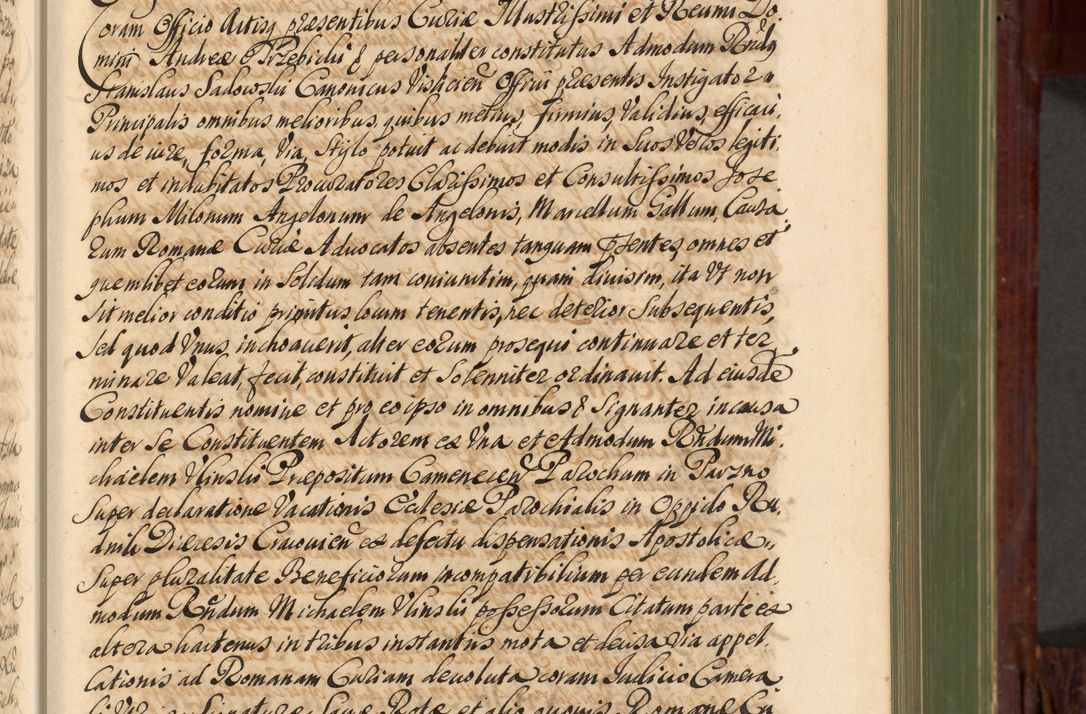 Coram Officio Actisq presentibus Curiæ Illustrissimi et Reverendissimi Do,
mini Andreæ Trzebicki & personaliter constitutus Admodum Rndus
Stanislaus Sadowski Canonicus Visliciens Officii præsentis Instigator
Principalis omnibus melioribus, quibus melius, firmius, Validius, efficaci,
us de iure, forma, Via, Stylo potuit ac debuit modis in Suos Veros legiti,
mos et indubitatos Procuratores Clarissimos et Consultissimos Jose
phum Milonum Angelonum de Angelonis, Marcellum Gallum Causa,
rum Romanæ Curiæ Advocatos absentes tanquam psentes, omnes et
quemlibet eorum in Solidum tam coniunctim, quam divisim, ita Vt non
Sit melior conditio primitus locum tenentis, nec deterior Subsequentis,
Sed quod Vnus inchoaverit, alter eorum prosequi continuare et ter
minare Valeat, fecit, constituit et Solenniter ordinavit. Ad eiusdē
Constituentis nomine et pro eo ipso in omnibus & Signanter in causa
inter Se Constituentem Actorem ex Vna et Admodum Rndum Mi,
chaelem Vlinski Præpositum Camenecen Parochum in Parzno
Super declaratione Vacationis Ecclesiæ Parochialis in Oppido Ru,
dnik Diæcesis Cracovien ex defectu dispensationis Apostolicæ,,
Super pluralitate Beneficiorum incompatibilium per eundem Ad,
modum Rndum Michaelem Vlinski possessorum Citatum parte ex
altera hactenus in tribus instantiis mota et decisa Via appel,
lationis ad Romanam Curiam devoluta coram Iudicio Camera
Signaturæ Sacræ Rotæ et alio quovis Romanæ Cu